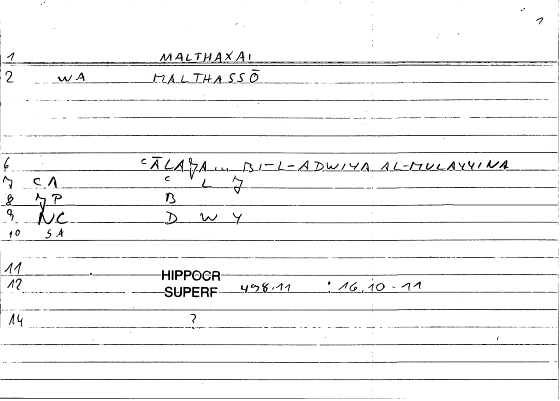 1
1 MALTHAXAI
2 WA MALTHASSŌ
6 ʿĀLAǦA... BI-L-ADWIYA AL-MULAYYINA
7 CA ʿ L Ǧ
8 JP B
9 NC D W Y
10 SA
11 HIPPOCR
12 SUPERF 498.11 16.10-11
14 ?